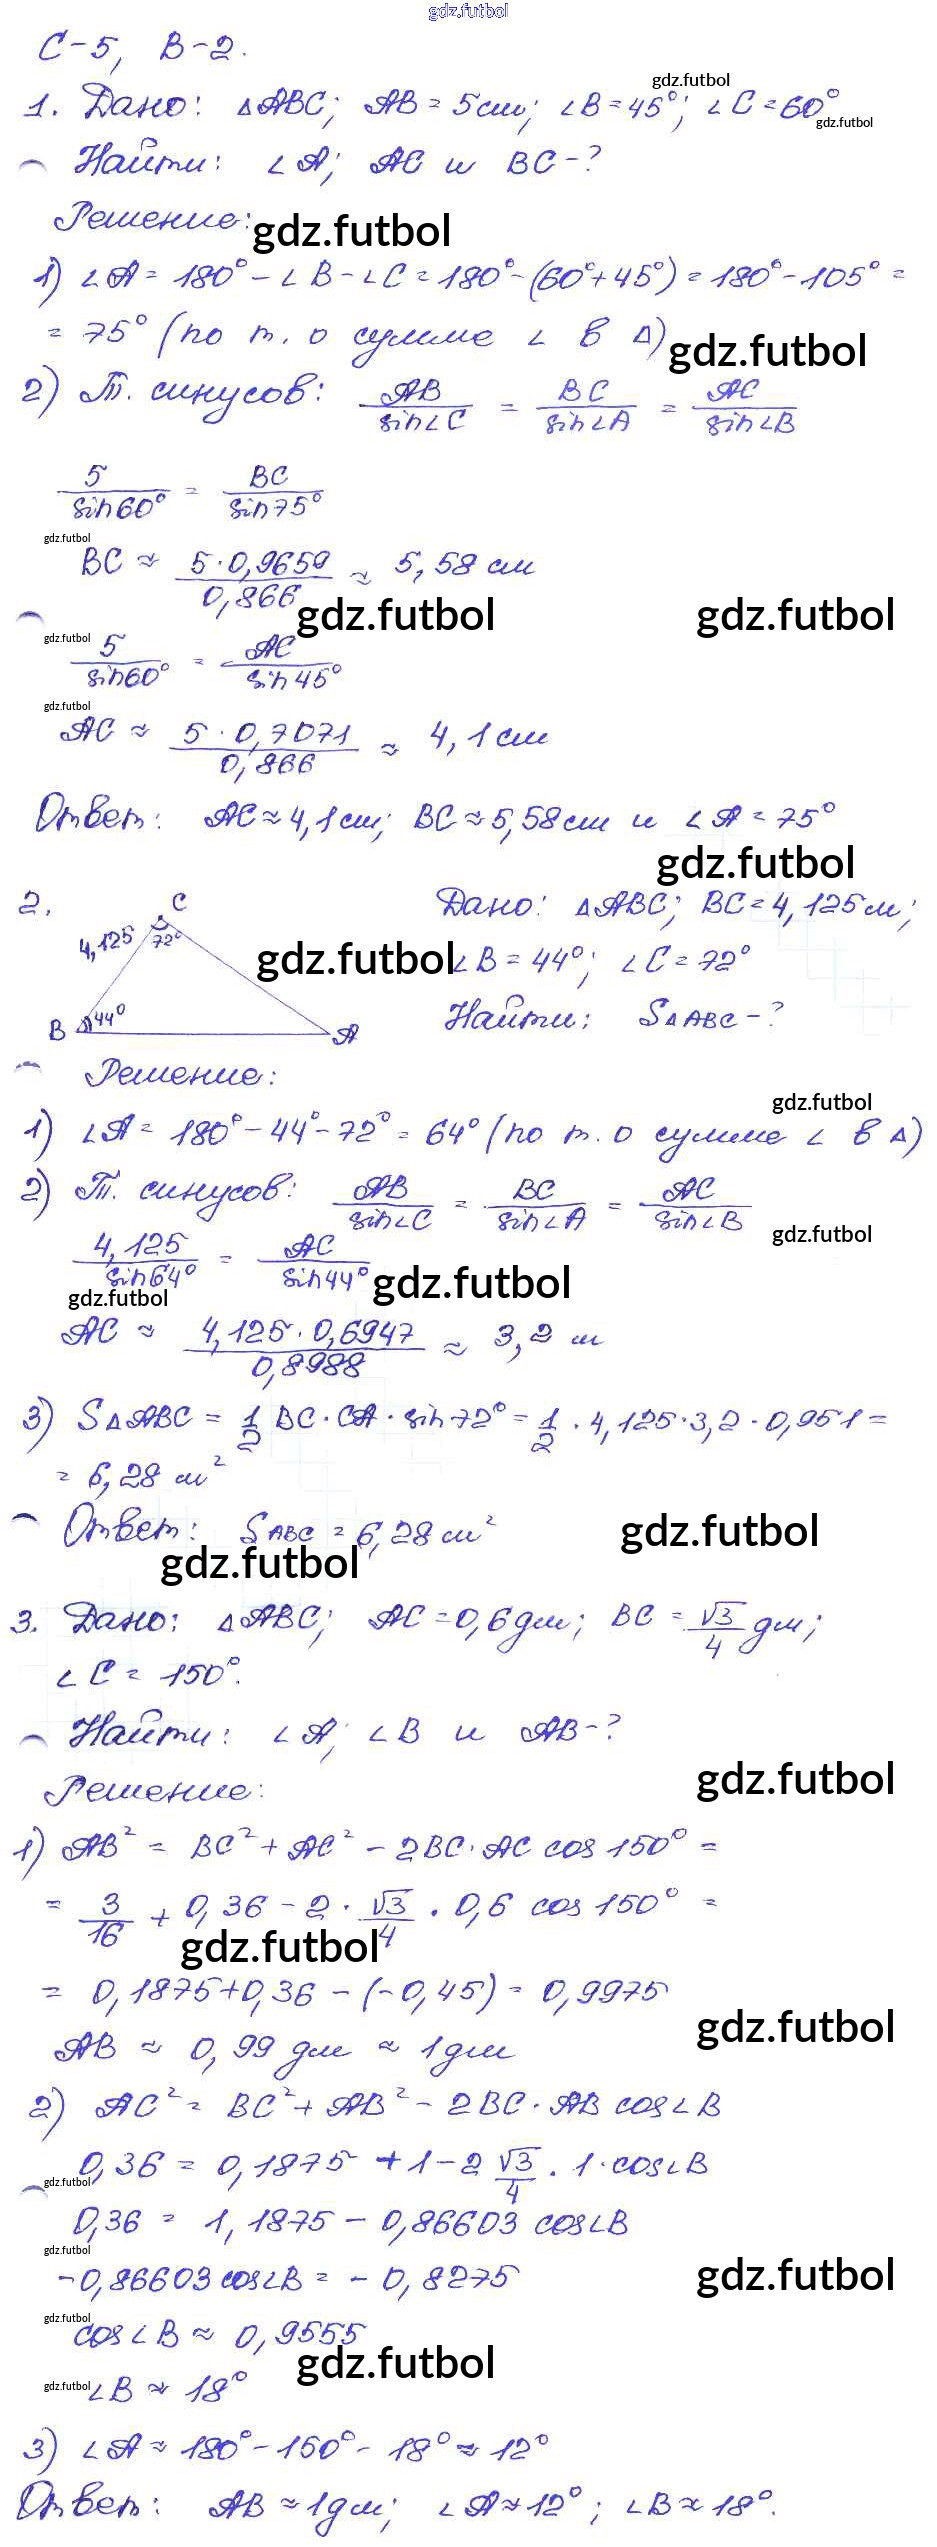 gdz.futbol
С-5, В-2.
gdz.futbol
1. Дано: △ABC; AB = 5см; ∠B = 45°; ∠C = 60°
gdz.futbol
Найти: ∠A; AC и BC - ?
Решение:
gdz.futbol
1) ∠A = 180° - ∠B - ∠C = 180° - (60° + 45°) = 180° - 105° =
= 75° (по т. о сумме ∠ в △)
gdz.futbol
2) Т. синусов: AB/sin∠C = BC/sin∠A = AC/sin∠B
5/sin60° = BC/sin75°
gdz.futbol
BC ≈ 5·0,9659/0,866 ≈ 5,58 см
gdz.futbol gdz.futbol
gdz.futbol
5/sin60° = AC/sin45°
gdz.futbol
AC ≈ 5·0,7071/0,866 ≈ 4,1 см
Ответ: AC ≈ 4,1 см; BC ≈ 5,58 см и ∠A = 75°
gdz.futbol
2.
C
4,125
72°
B
44°
A
Дано: △ABC; BC = 4,125м;
gdz.futbol
∠B = 44°; ∠C = 72°
Найти: S△ABC - ?
Решение:
gdz.futbol
1) ∠A = 180° - 44° - 72° = 64° (по т. о сумме ∠ в △)
2) Т. синусов: AB/sin∠C = BC/sin∠A = AC/sin∠B
gdz.futbol
4,125/sin64° = AC/sin44°
gdz.futbol
gdz.futbol
AC ≈ 4,125·0,6947/0,8988 ≈ 3,2 м
3) S△ABC = 1/2 BC·CA·sin72° = 1/2 · 4,125·3,2·0,951 =
= 6,28 м²
Ответ: SABC = 6,28 м²
gdz.futbol
gdz.futbol
3. Дано: △ABC; AC = 0,6дм; BC = √3/4 дм;
∠C = 150°.
Найти: ∠A; ∠B и AB - ?
gdz.futbol
Решение:
1) AB² = BC² + AC² - 2BC·AC cos150° =
= 3/16 + 0,36 - 2·√3/4·0,6 cos150° =
gdz.futbol
= 0,1875 + 0,36 - (-0,45) = 0,9975
gdz.futbol
AB ≈ 0,99 дм ≈ 1дм
2) AC² = BC² + AB² - 2BC·AB cos∠B
0,36 = 0,1875 + 1 - 2 √3/4 · 1·cos∠B
gdz.futbol
0,36 = 1,1875 - 0,86603 cos∠B
gdz.futbol
-0,86603 cos∠B = -0,8275
gdz.futbol
gdz.futbol
cos∠B ≈ 0,9555
gdz.futbol
gdz.futbol
∠B ≈ 18°
3) ∠A ≈ 180° - 150° - 18° ≈ 12°
Ответ: AB ≈ 1дм; ∠A ≈ 12°; ∠B ≈ 18°.